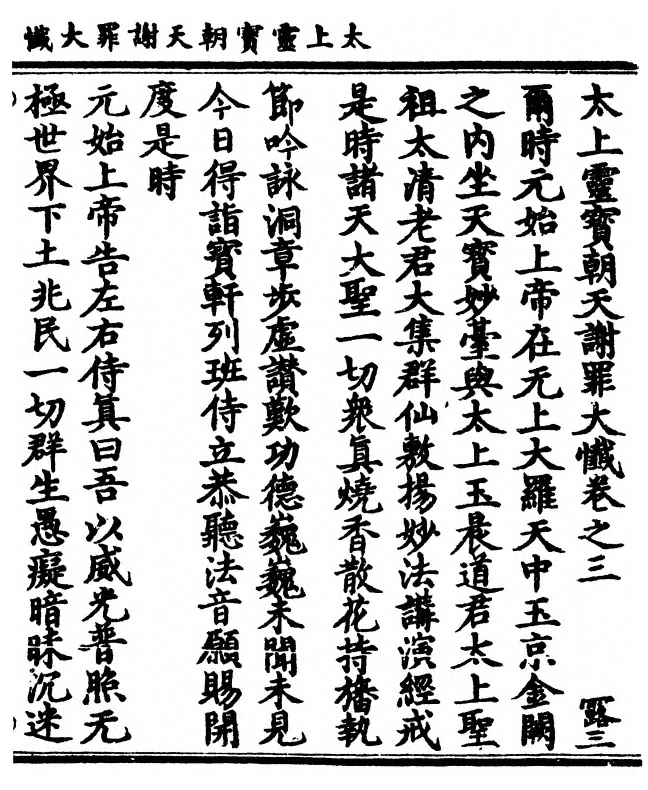 太上靈寶朝天謝罪大懺
太上靈寶朝天謝罪大懺卷之三 路三
爾時元始上帝在无上大羅天中玉京金闕
之內坐天寳妙臺與太上玉晨道君太上聖
祖太清老君大集群仙敷揚妙法講演經戒
是時諸天大聖一切衆真燒香散花持旛執
節吟詠洞章步虛讃歎功德巍巍未聞未見
今日得詣寳軒列班侍立恭聽法音願賜開
度是時
元始上帝告左右侍真曰吾以威光普照无
極世界下土兆民一切群生愚癡暗昧沉迷